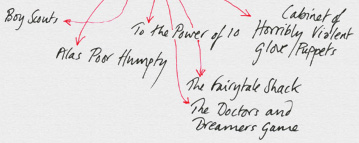 Boy Scouts
Alas Poor Humpty
To the Power of 10
Cabinet of
Horribly Violent
Glove/Puppets
The Fairytale Shack
The Doctors and
Dreamers Game